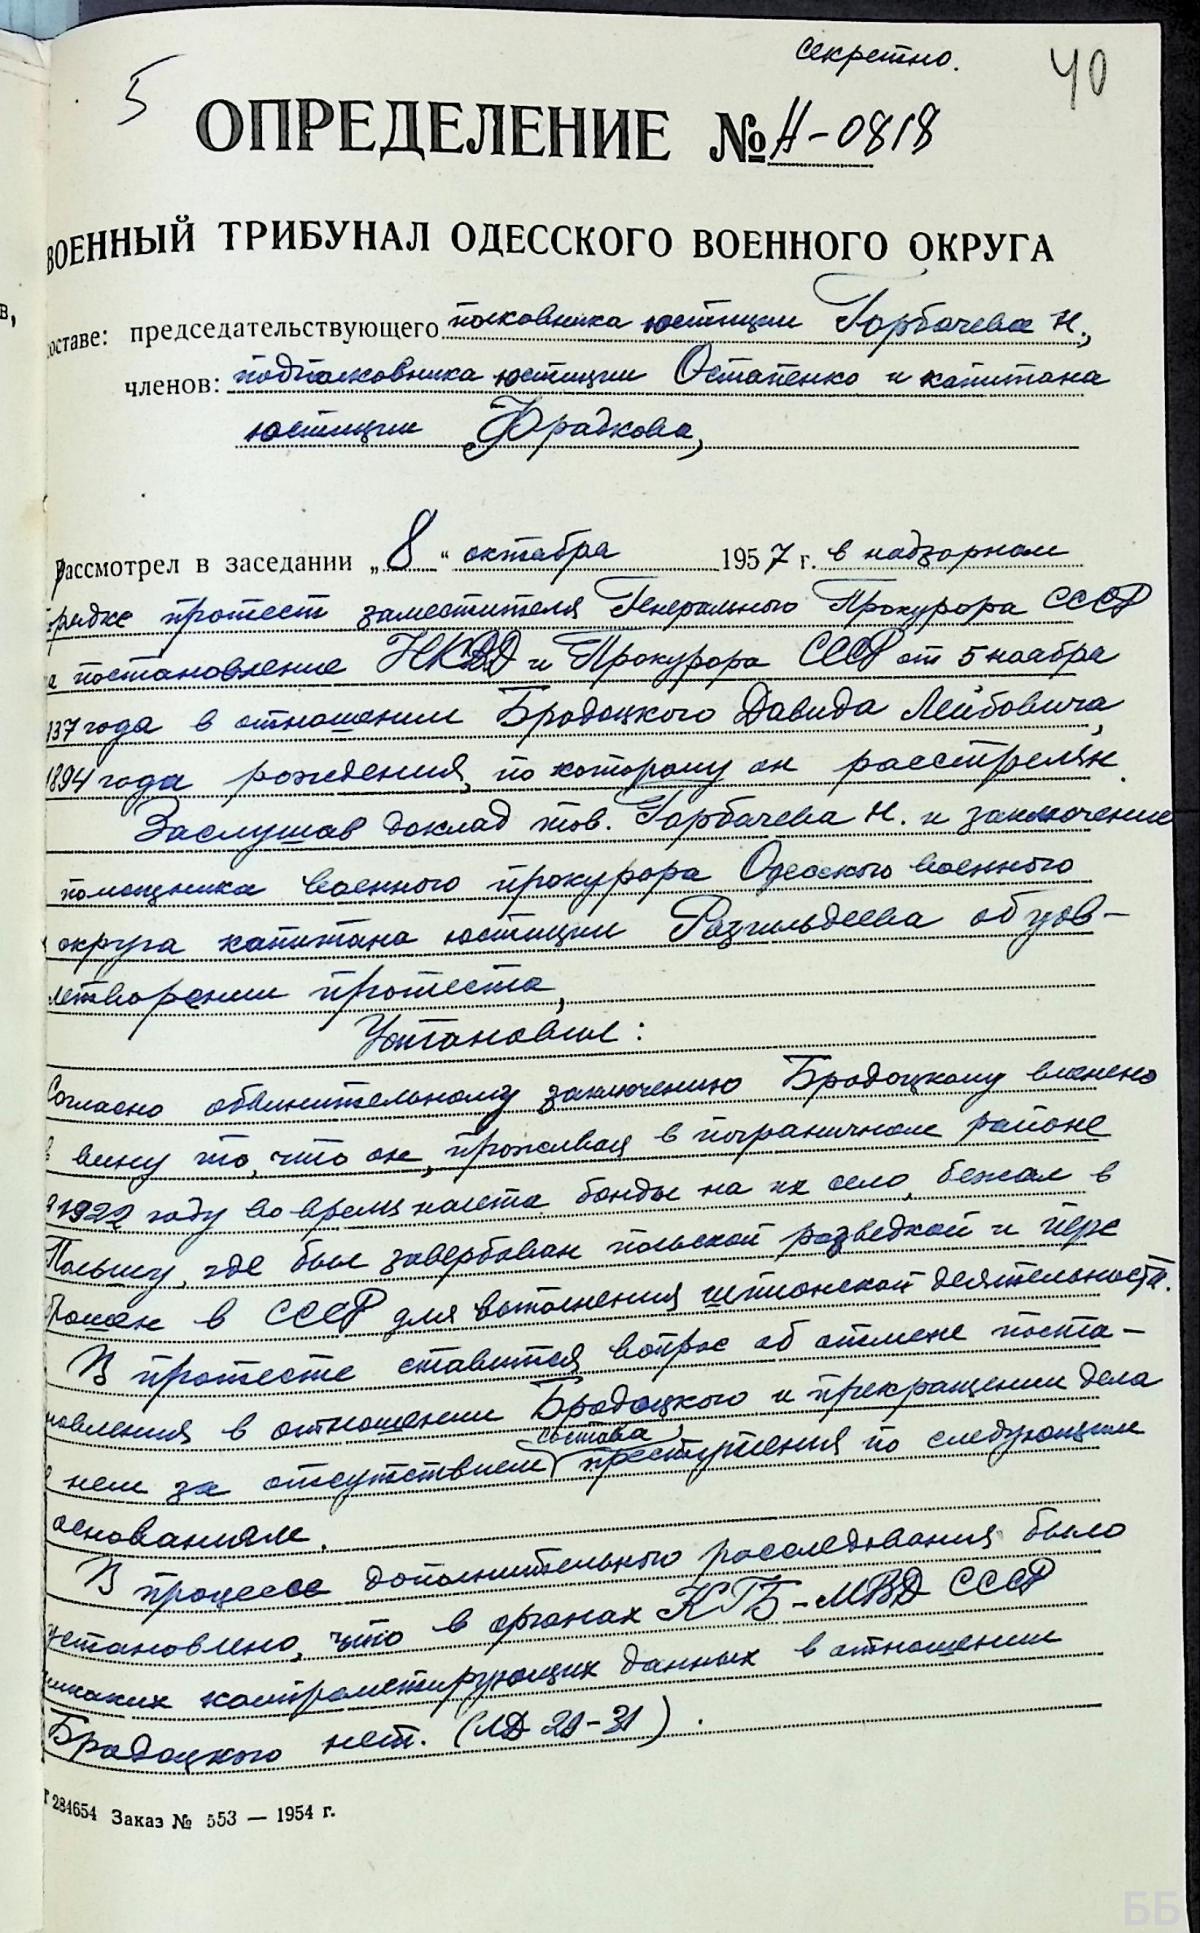 Секретно.
40
5
ОПРЕДЕЛЕНИЕ № Н-0818
ВОЕННЫЙ ТРИБУНАЛ ОДЕССКОГО ВОЕННОГО ОКРУГА
в,
оставе: председательствующего полковника юстиции Горбачева Н.,
членов: подполковника юстиции Остапенко и капитана
юстиции Фрадкова,
Рассмотрел в заседании „8“ октября 1957 г. в надзорном
орядке протест заместителя Генерального Прокурора СССР
а постановление НКВД и Прокурора СССР от 5 ноября
937 года в отношении Бродоцкого Давида Лейбовича,
1894 года рождения, по которому он расстрелян.
Заслушав доклад тов. Горбачева Н. и заключение
помощника военного прокурора Одесского военного
округа капитана юстиции Разгильдеева об удов-
летворении протеста,
Установил:
Согласно обвинительному заключению Бродоцкому вменено
в вину то, что он, проживая в пограничном районе
в 1922 году во время налета банды на их село, бежал в
Польшу, где был завербован польской разведкой и пере
брошен в СССР для выполнения шпионской деятельности.
В протесте ставится вопрос об отмене поста-
новления в отношении Бродоцкого и прекращении дела
о нем за отсутствием состава преступления по следующим
основаниям.
В процессе дополнительного расследования было
установлено, что в органах КГБ-МВД СССР
никаких компрометирующих данных в отношении
Бродоцкого нет. (ЛД 21-31).
Г 284654 Заказ № 553 — 1954 г.
ББ